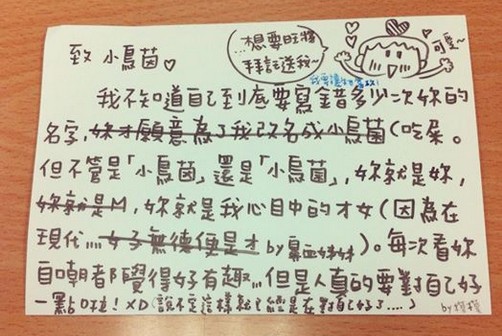 致 小鳥茵♡
...想要旺將
拜託送我~
可愛~
我不知道自己到底要寫錯多少次妳的
名字,妳才願意為了我改名成小鳥菌(吃屎。
但不管是「小鳥茵」還是「小鳥菌」,妳就是妳,
妳就是M,妳就是我心目中的才女(因為在
現代...女子無德便是才by
)。每次看妳
自嘲都覺得好有趣...但是人真的要對自己好
一點啦!XD(說不定這樣就已經是在對自己好了....)
by